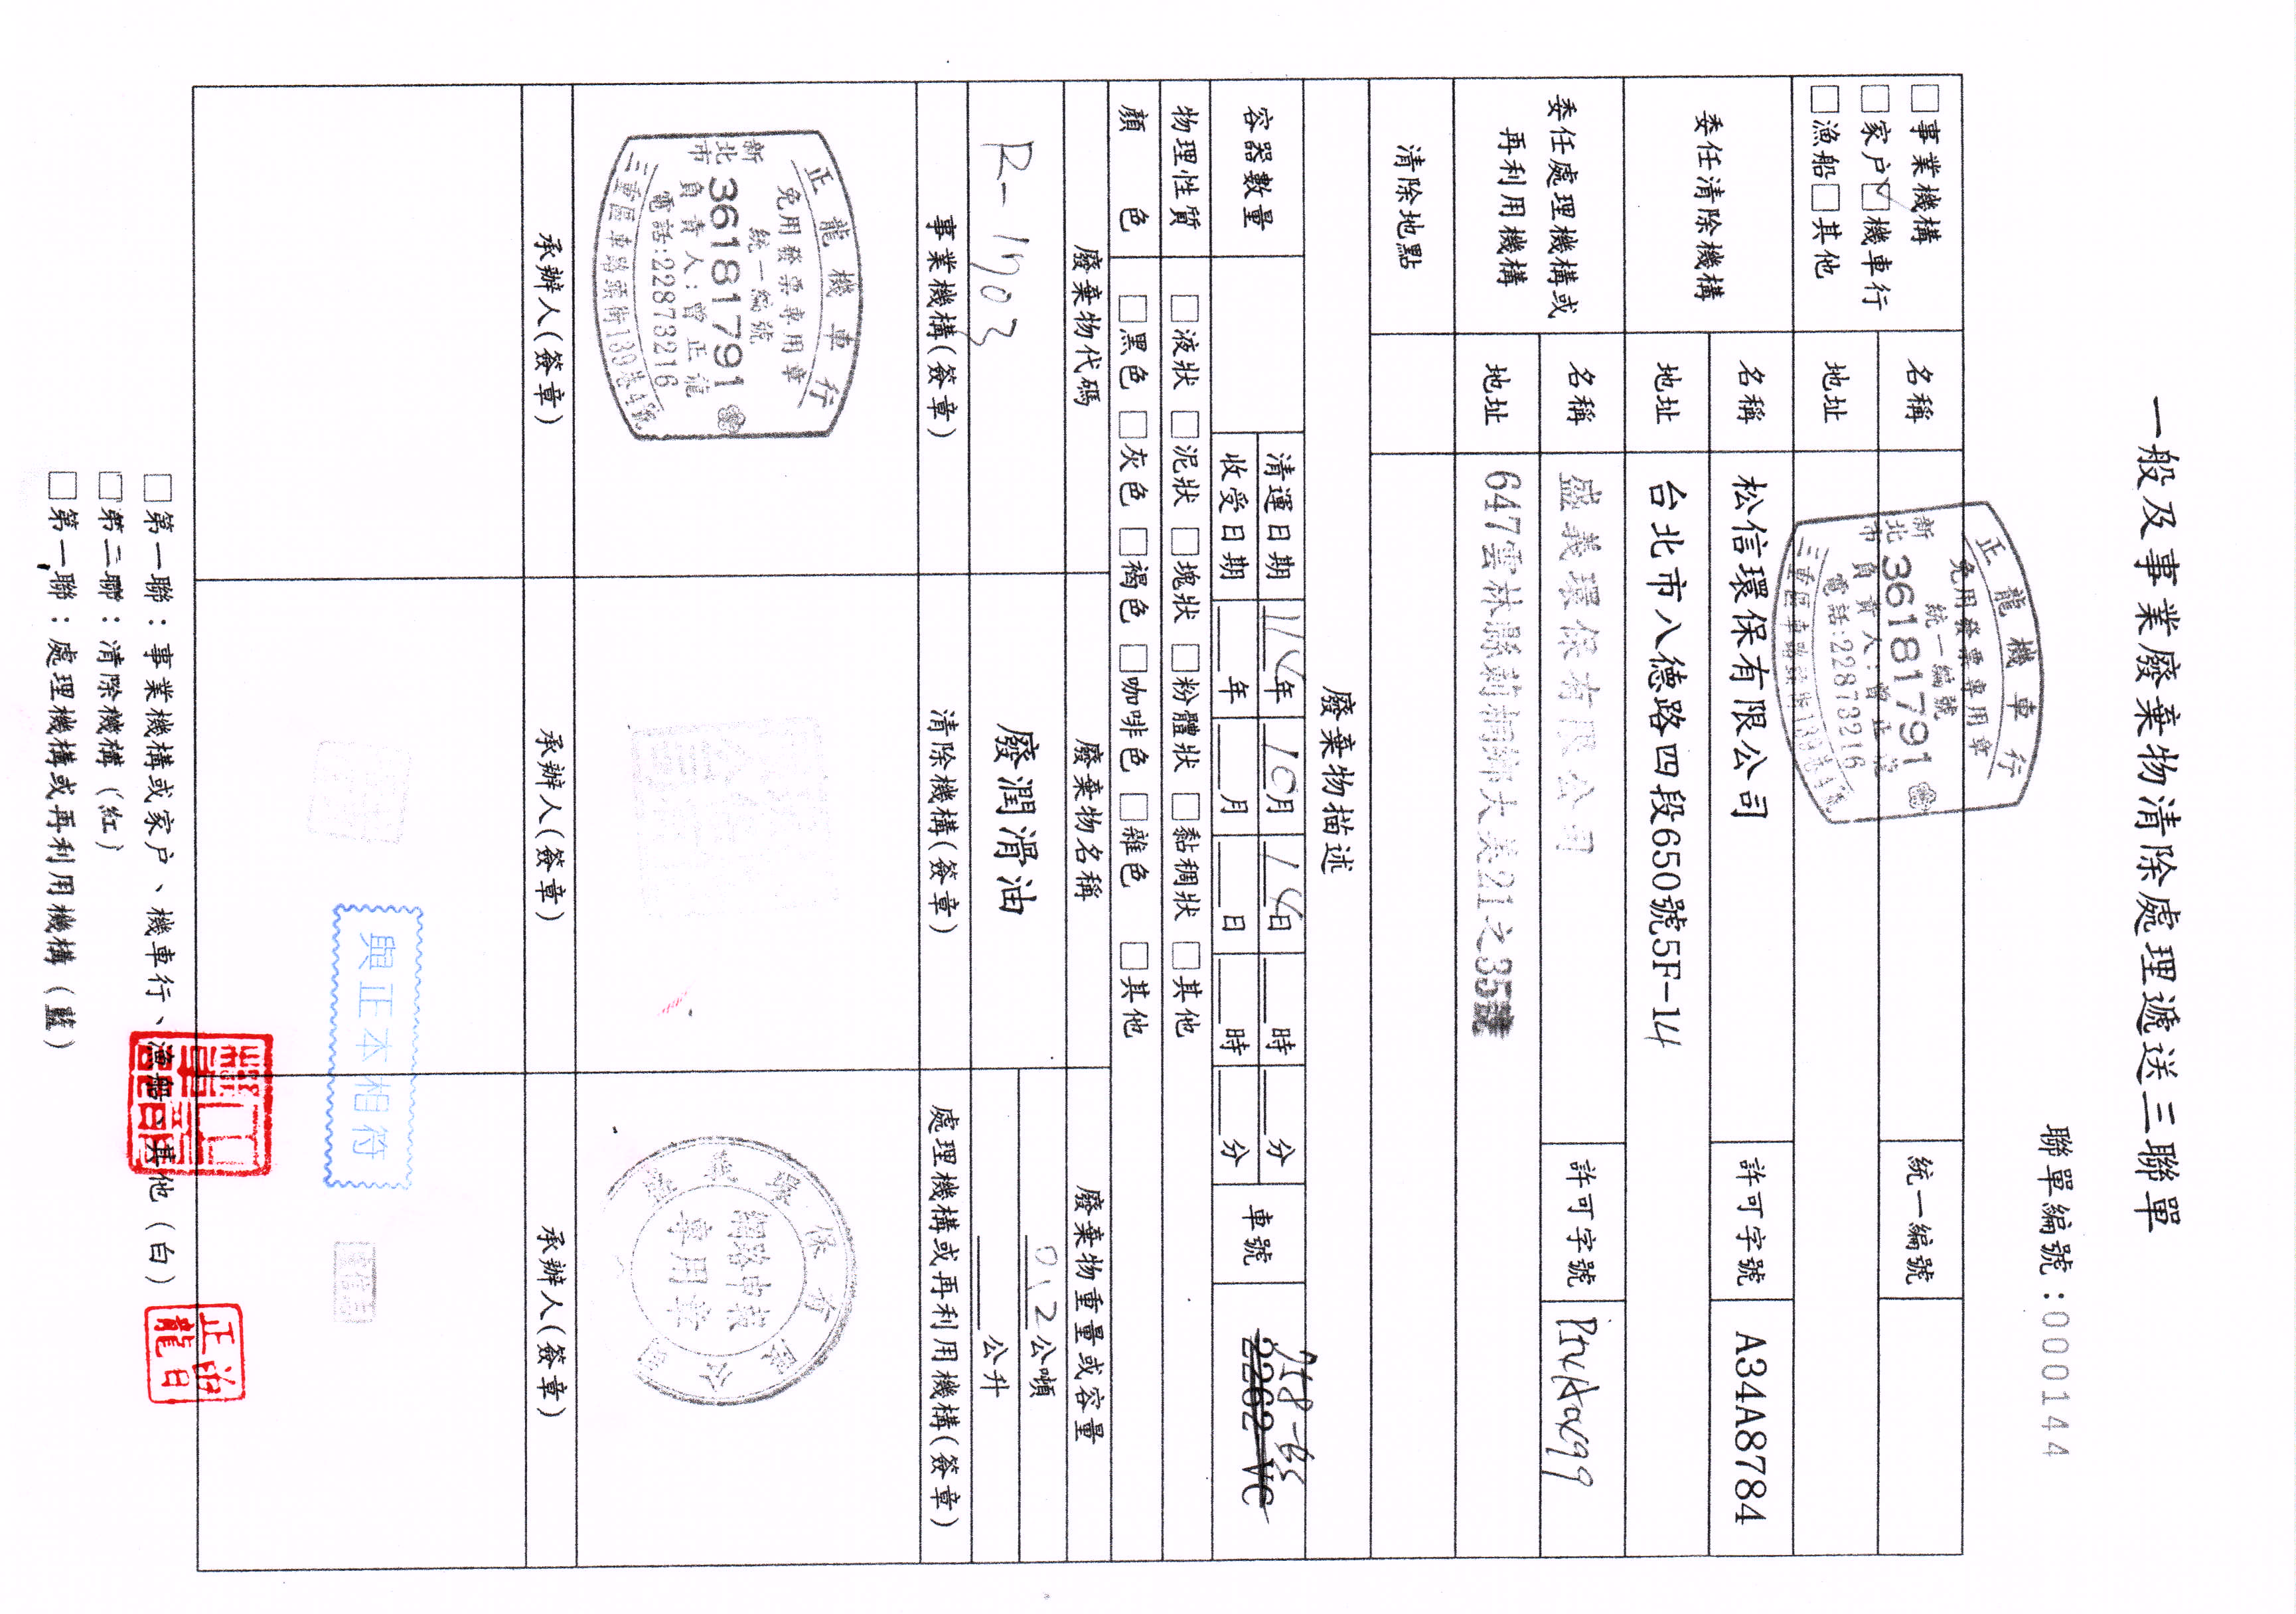 一般及事業廢棄物清除處理遞送三聯單
聯單編號：000144
□事業機構
□家戶☑機車行
□漁船□其他
名稱
統一編號
地址
正龍機車行
免用發票專用章
統一編號
新北市 36181791
負責人：曾正龍
電話:22873216
三重區車路頭街139巷4號
委任清除機構
名稱 松信環保有限公司 許可字號 A34A8784
地址 台北市八德路四段650號5F-14
委任處理機構或
再利用機構
名稱 盛義環保有限公司 許可字號
地址 647雲林縣莿桐鄉大美21之35號
清除地點
廢棄物描述
容器數量
清運日期 年 10月 14日 時 分
收受日期 年 月 日 時 分
車號 2262-VC
物理性質 □液狀 □泥狀 □塊狀 □粉體狀 □黏稠狀 □其他
顏色 □黑色 □灰色 □褐色 □咖啡色 □雜色 □其他
廢棄物代碼 廢棄物名稱 廢棄物重量或容量
R-1703 廢潤滑油 0.2公噸
公升
事業機構(簽章) 清除機構(簽章) 處理機構或再利用機構(簽章)
正龍機車行
免用發票專用章
統一編號
新北市 36181791
負責人：曾正龍
電話:22873216
三重區車路頭街139巷4號
環保有限公司
網路申報
專用章
承辦人(簽章) 承辦人(簽章) 承辦人(簽章)
與正本相符
□第一聯：事業機構或家戶、機車行、漁船、其他（白）
□第二聯：清除機構（紅）
□第一聯：處理機構或再利用機構（藍）